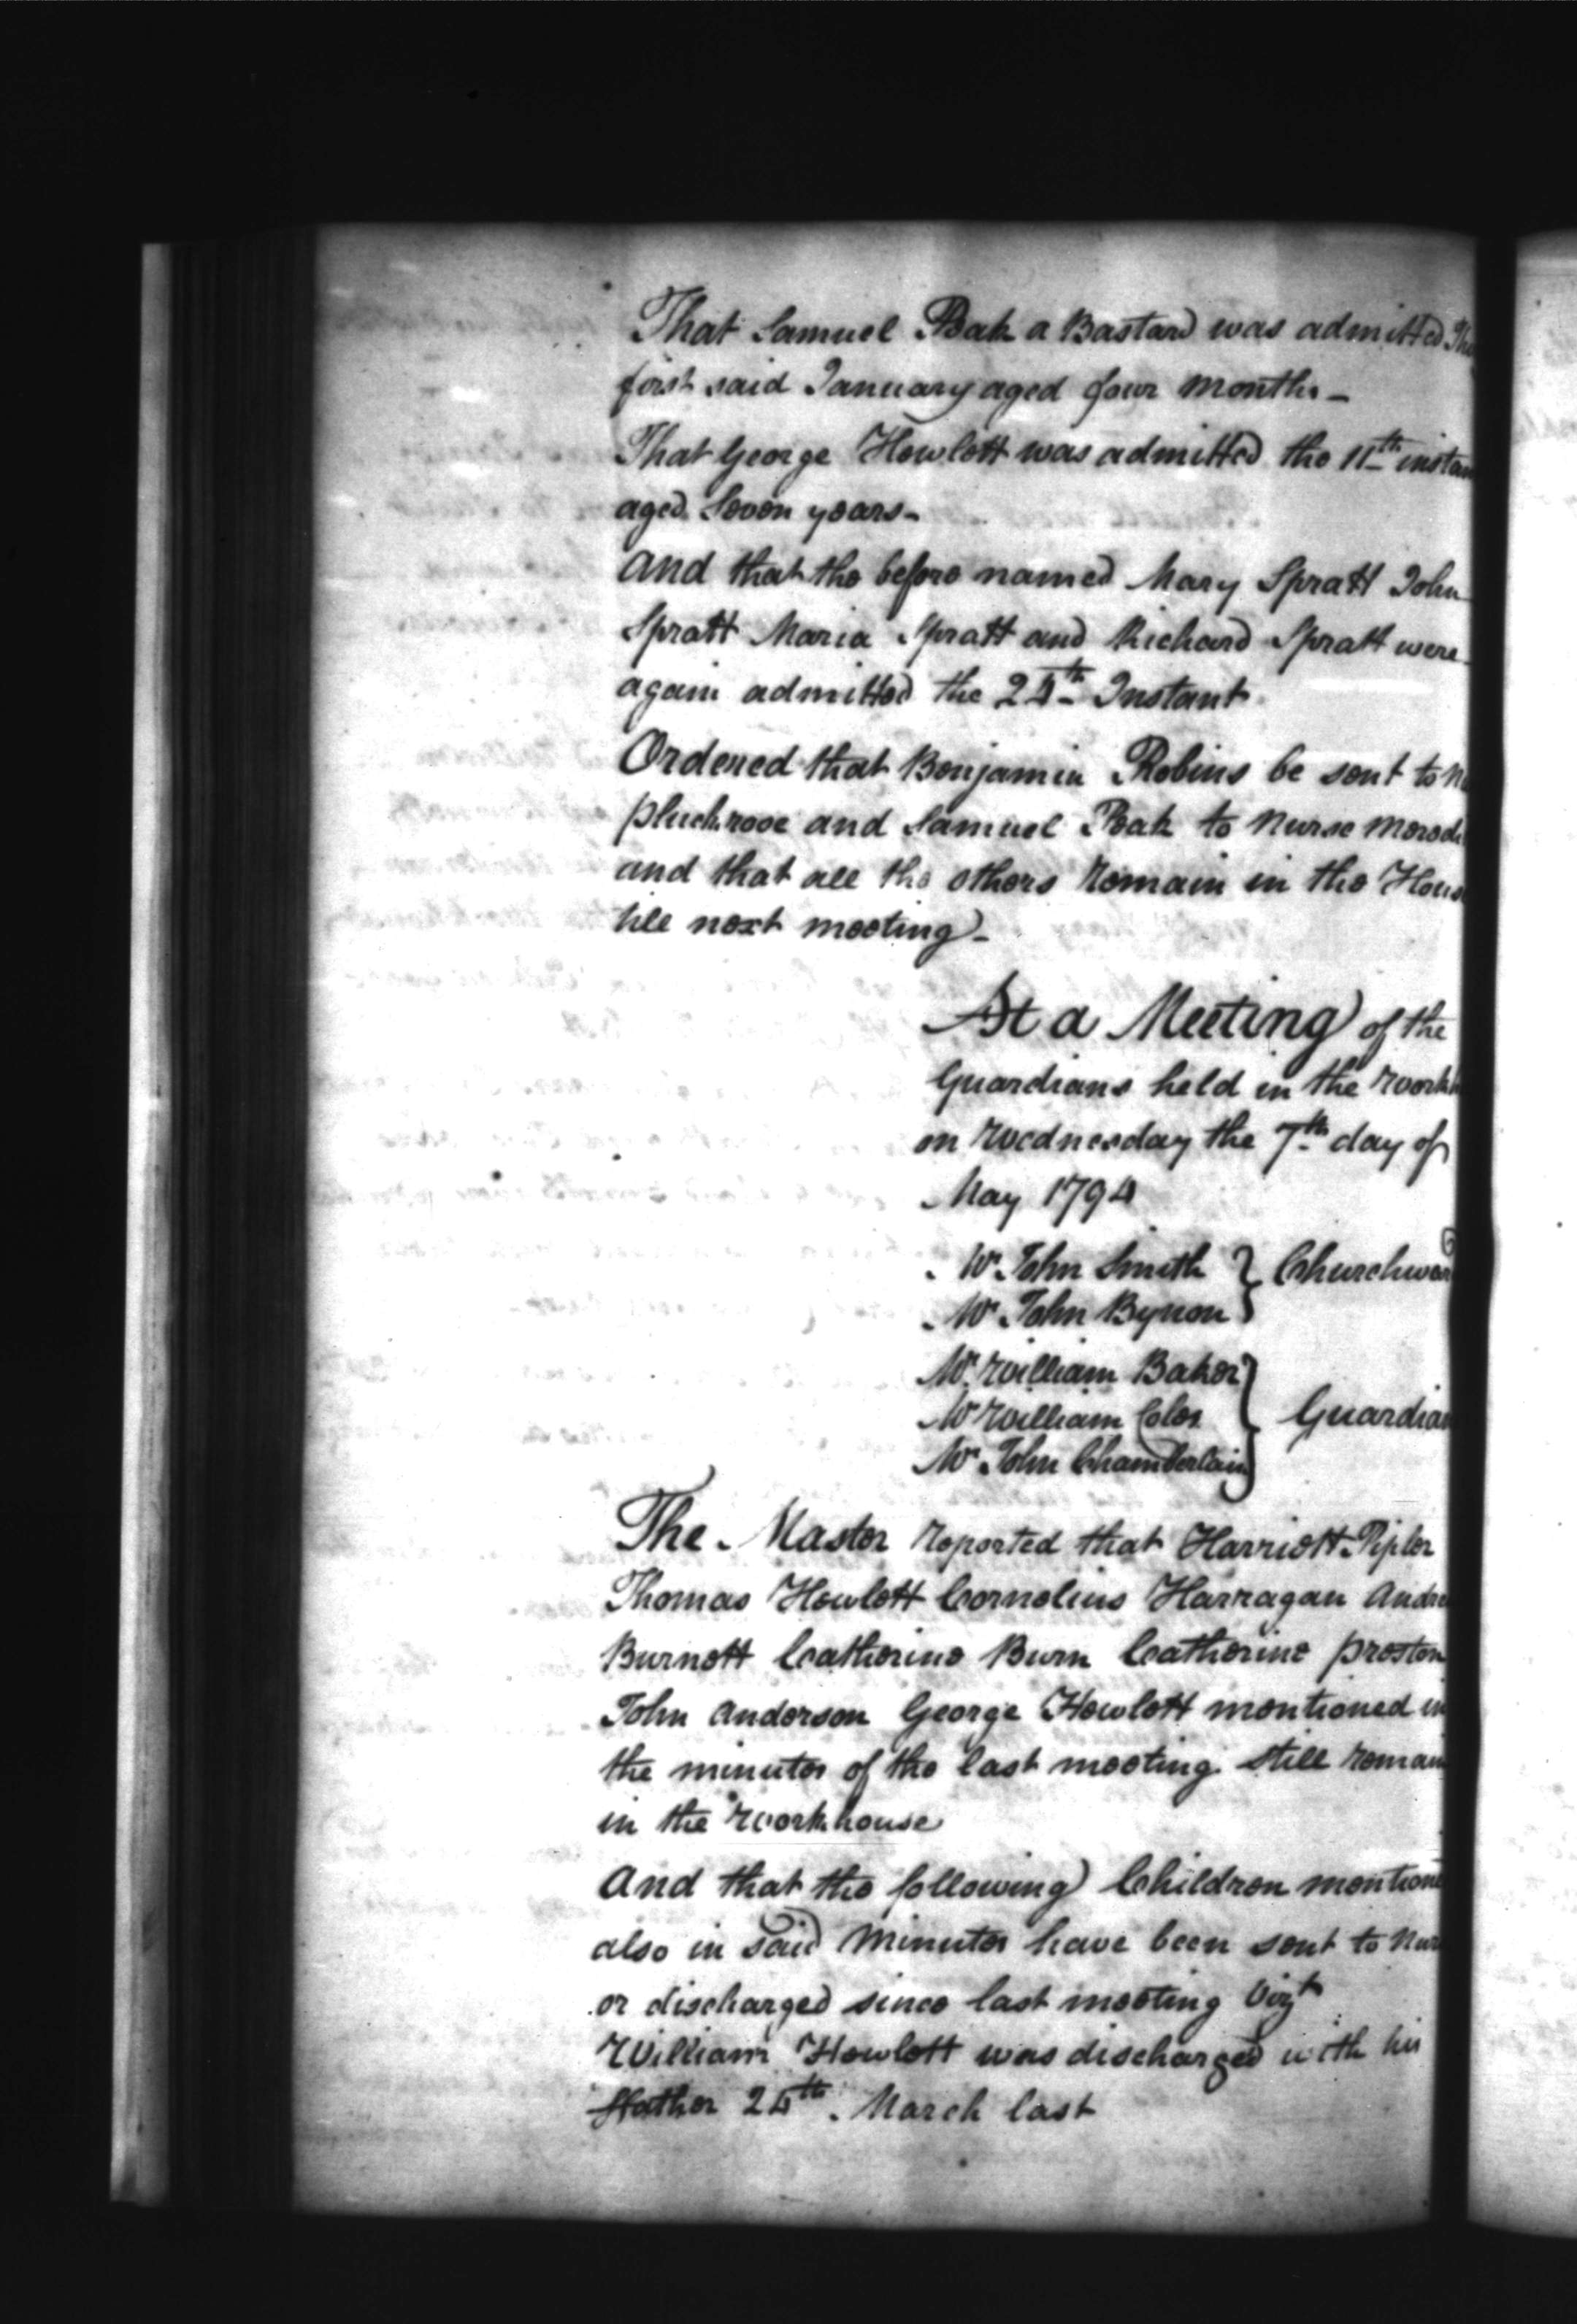 That Samuel Peak a Bastard was admitted the
first said January aged four months -
That George Howlett was admitted the 11th instan
aged Seven years -
And that the before named Mary Spratt John
Spratt Maria Spratt and Richard Spratt were
again admitted the 24th Instant
Ordered that Benjamin Robins be sent to N
pluckrose and Samuel Peak to Nurse
and that all the others Remain in the Hous
till next meeting -
At a Meeting of the
Guardians held in the Workh
on Wednesday the 7th day of
May 1794
Mr. John Smith } Churchwar
Mr. John Bynon
Mr. William Baker
Mr William Coles } Guardian
Mr. John Chamberlain
The Master Reported that Harriott Pipler
Thomas Howlett Cornelius Harragan Andre
Burnett Catherine Burn Catherine preston
John Anderson George Howlett mentioned in
the minutes of the last meeting still remain
in the Workhouse
And that the following Children mentione
also in said Minutes have been sent to Nur
or discharged since last meeting Vizt
William Howlett was discharged with his
ffather 24th. March last